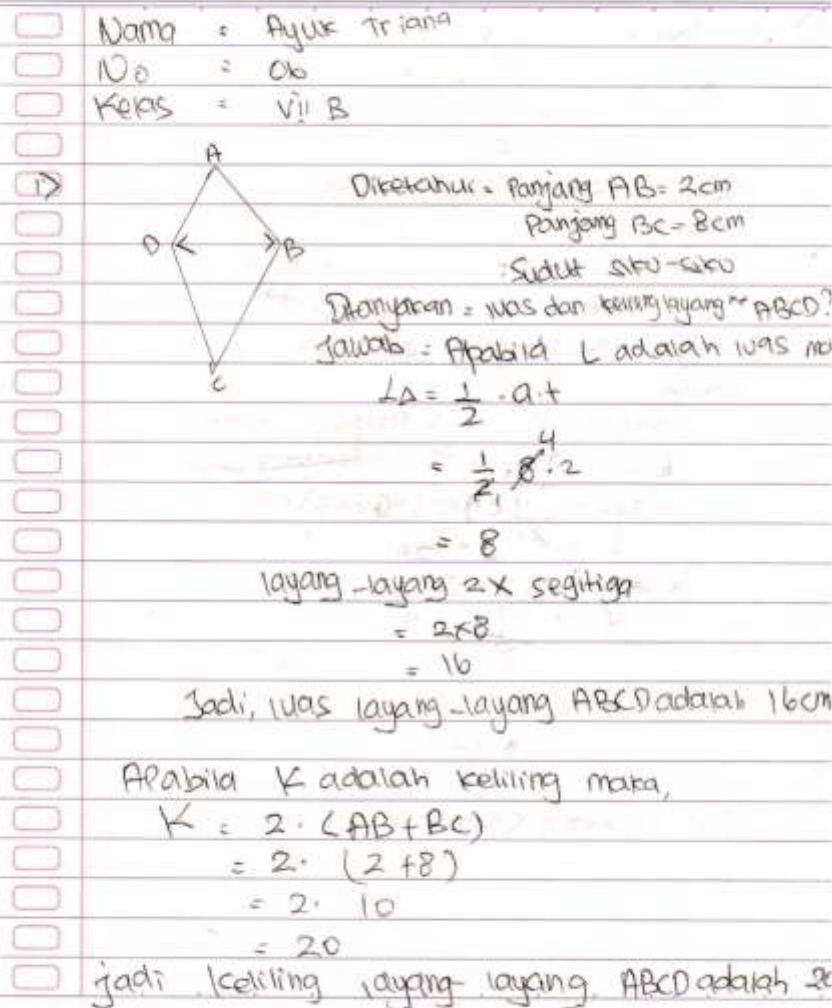 Nama : Ayuk Triana
No : 06
Kelas : VII B
A
1> Diketahui = Panjang AB = 2cm
Panjang BC = 8cm
D B
: Sudut siku-siku
Ditanyakan = luas dan keliling layang~ ABCD?
Jawab = Apabila L adalah luas ma
C
L△ = 1/2 · a·t
= 1/2 · 8 · 2
4
1
= 8
layang-layang 2x segitiga
= 2x8
= 16
Jadi, luas layang-layang ABCD adalah 16cm
Apabila K adalah keliling maka,
K = 2 · (AB + BC)
= 2 · (2 + 8)
= 2 · 10
= 20
jadi keliling layang-layang ABCD adalah 20